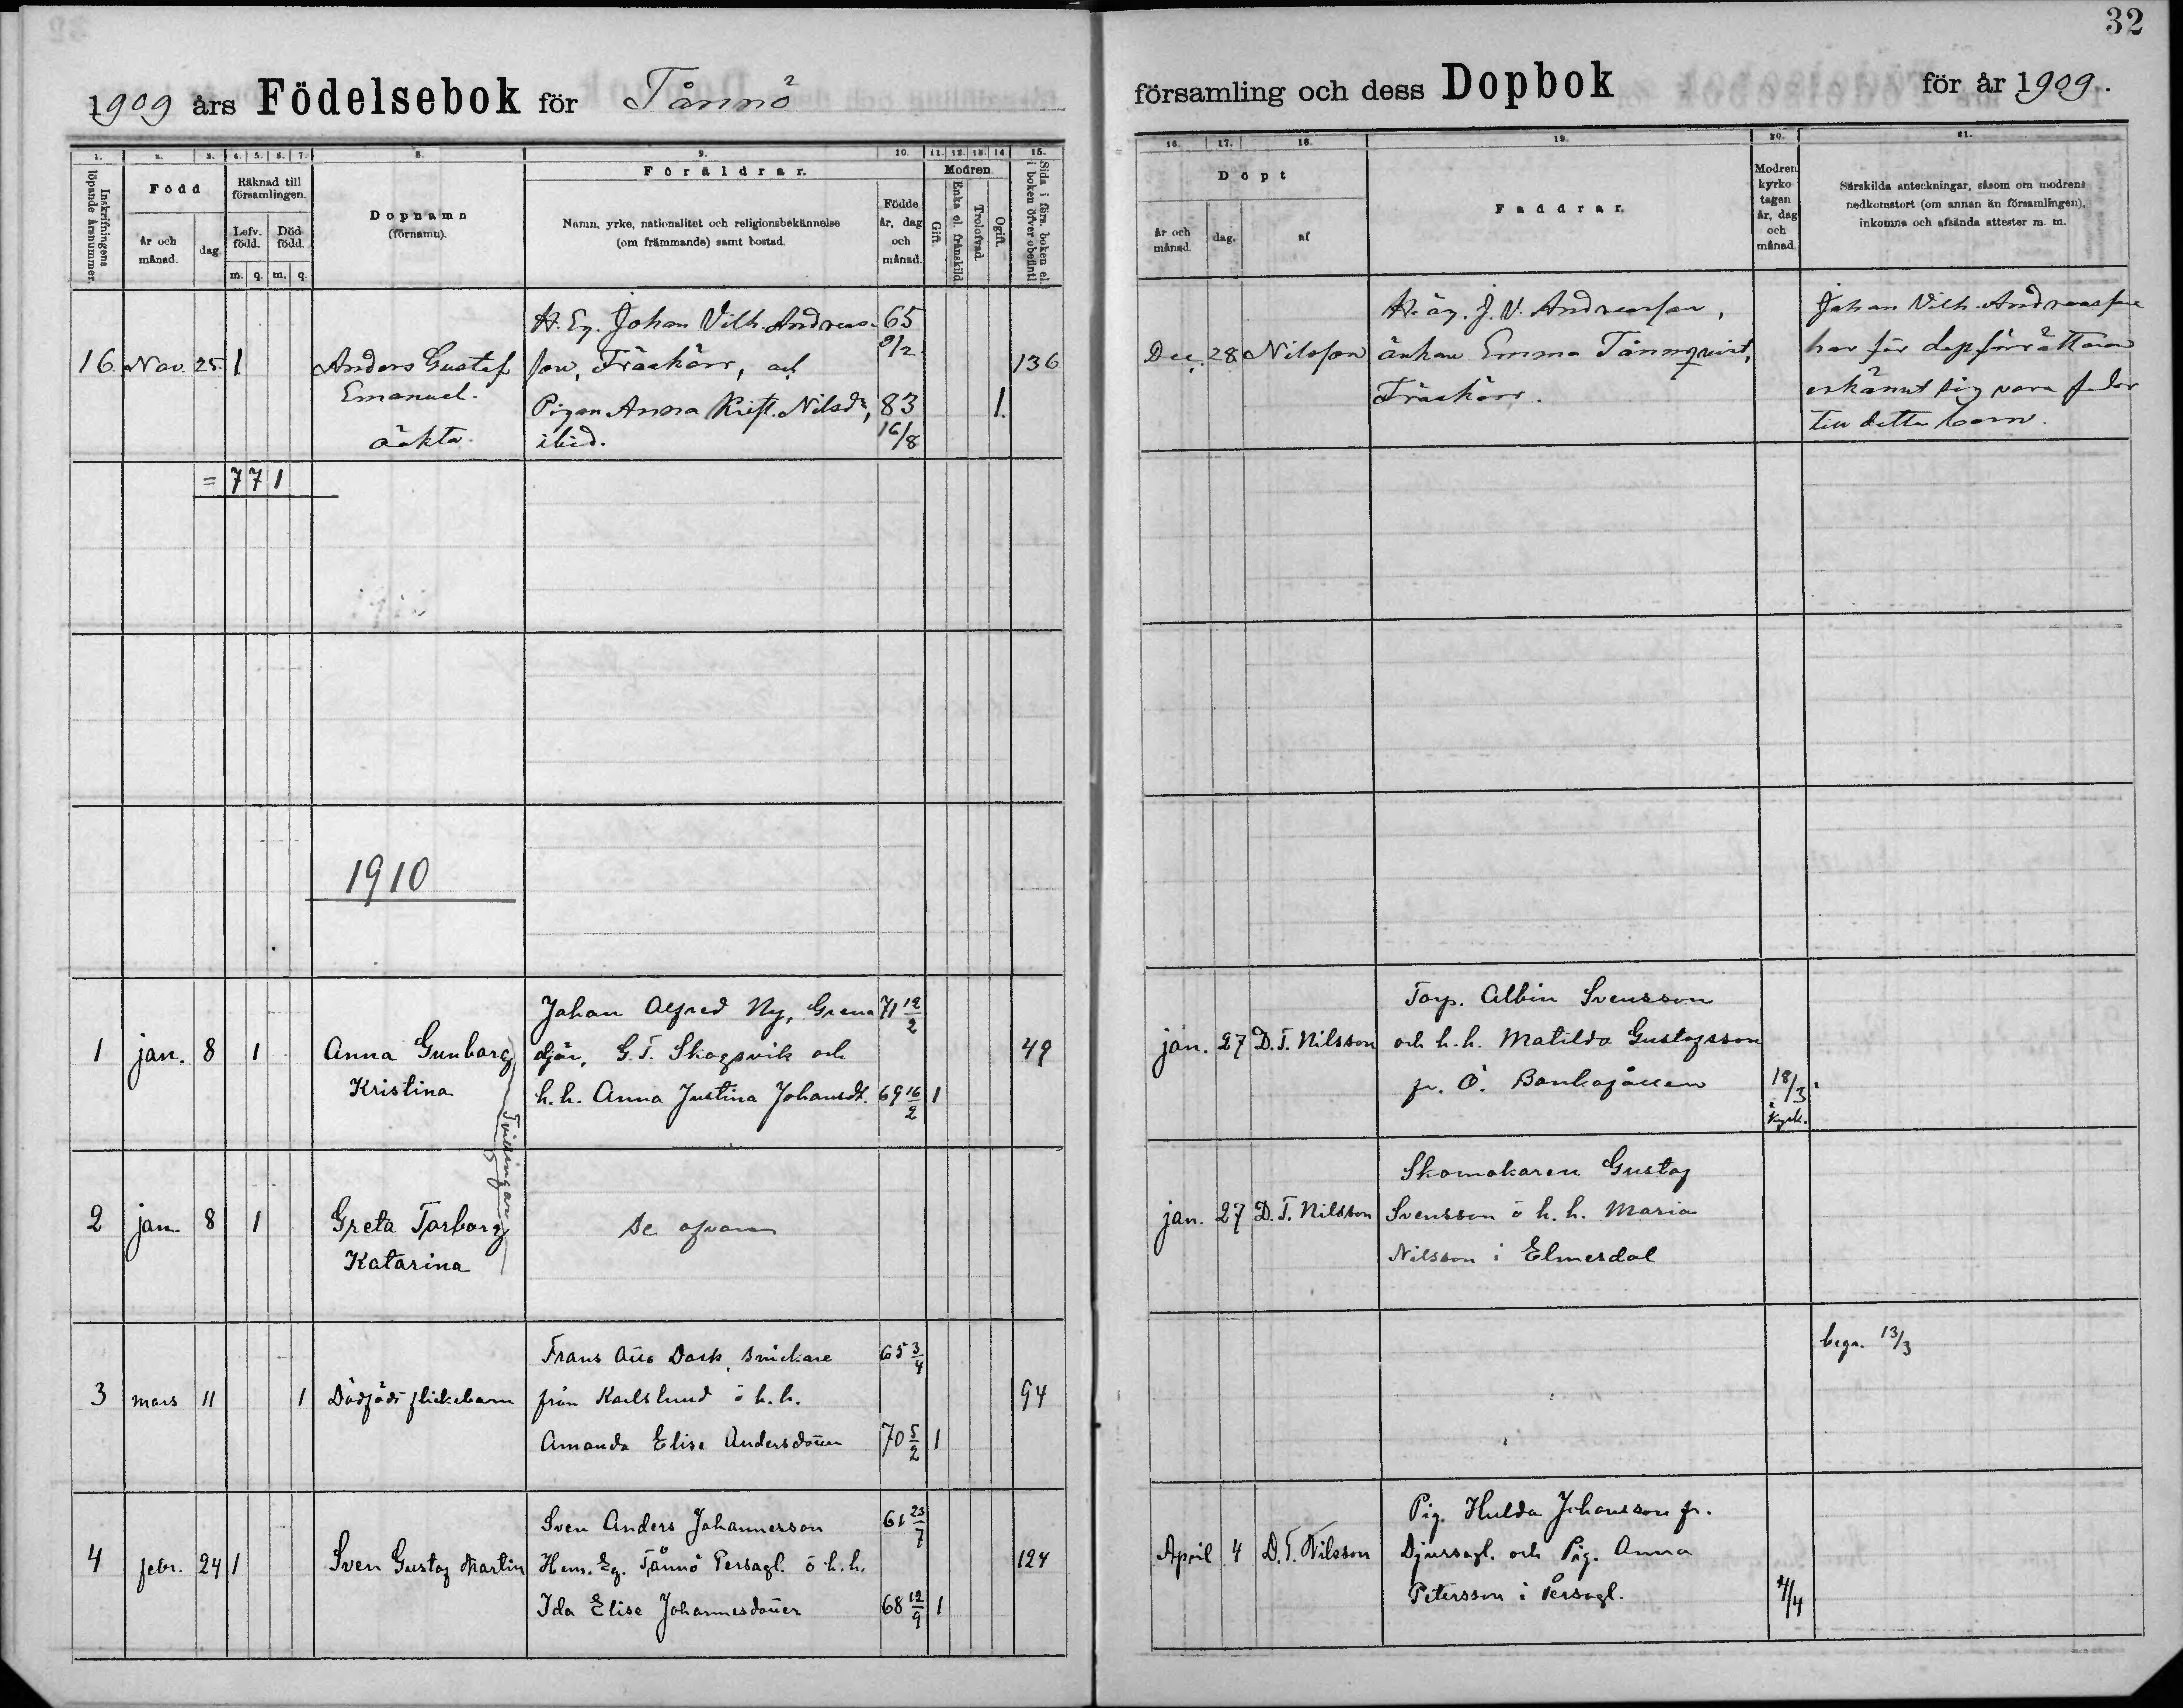 32
1909 års Födelsebok för Tånnö
församling och dess Dopbok för år 1909.
1. 2. 3. 4. 5. 6. 7. 8. 9. 10. 11. 12. 13. 14 15.
Inskrifningens löpande årsnummer.
Född
år och månad.
dag
Räknad till församlingen.
Lefv. född.
Död född.
m. q. m. q.
Dopnamn
(förnamn).
Föräldrar.
Namn, yrke, nationalitet och religionsbekännelse
(om främmande) samt bostad.
Födde
år, dag
och
månad.
Modren
Gift.
Enka el. frånskild.
Trolofvad.
Ogift.
Sida i förs. boken el.
i boken öfver obefintl.
16. 17. 18. 19. 20. 21.
Döpt
år och månad.
dag.
af
Faddrar.
Modren
kyrko
tagen
år, dag
och
månad.
Särskilda anteckningar, såsom om modrens
nedkomstort (om annan än församlingen),
inkomna och afsända attester m. m.
H. Eg. Johan Vilh. Andreas- 65
16. Nov. 25. 1 Anders Gustaf son, Fräskärr, och 9/2 136
Emanuel. Pigan Anna Krist. Nilsdr, 83 1.
oäkta. ibid. 16/8
H. äg. J. V. Andreasson, Johan Vilh. Andreasson
Dec. 28 Nilsson änkan Emma Tännqvist, har för dopförrättaren
Fräskärr. erkännt sig vara fader
till detta barn.
= 7 7 1
1910
Johan Alfred Ny, Grena 71 12/2
1 jan. 8 1 Anna Gunborg djär, G. T. Skogsvik och 49
Kristina h. h. Anna Justina Johansdt. 69 16/2 1
Tvillingar
Torp. Albin Svensson
jan. 27 D. T. Nilsson och h. h. Matilda Gustafsson
fr. Ö. 18/3
i kyrk.
2 jan. 8 1 Greta Torborg se ofvan
Katarina
Skomakaren Gustaf
jan. 27 D. T. Nilsson Svensson o h. h. Maria
Nilsson i Elmesdal
Frans Otto Dark, snickare 65 3/4
3 mars 11 1 Dödfödt flickebarn från Karlslund o h. h. 94
Amanda Elise Andersdotter 70 5/2 1
begr. 13/3
Sven Anders Johannesson 61 23/7
4 febr. 24 1 Sven Gustaf Martin Hem. Eg. Tånnö Persagl. o h. h. 124
Ida Elise Johannesdotter 68 12/9 1
Pig. Hulda Johansson fr.
April 4 D. T. Nilsson Djursagl. och Pig. Anna
Petersson i Persagl. 4/4